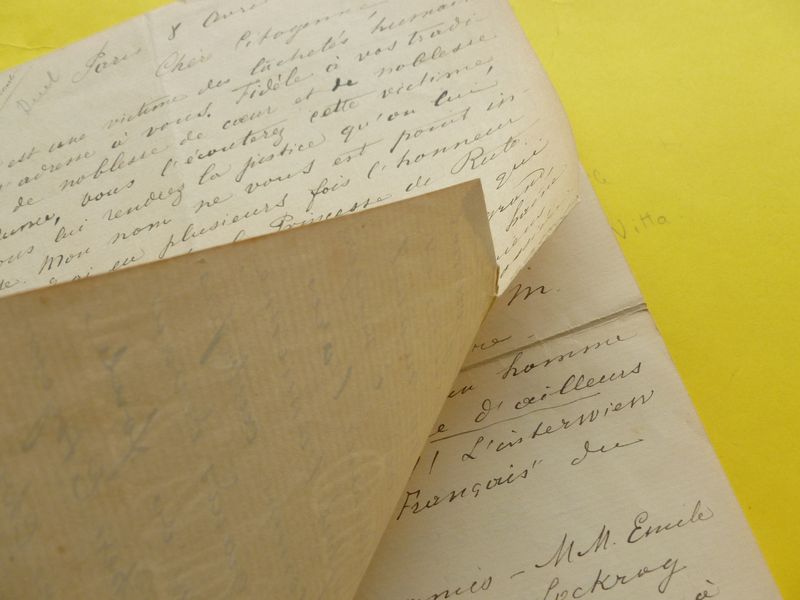 Duel Paris 8 Avril
Cher Citoyenne
est une victime des lâchetés humain
adresse à vous. Fidèle à vos tradi
de noblesse de cœur et de noblesse
vous l'écouterez cette victime
lui rendrez la justice qu'on lui
Mon nom ne vous est point in-
eu plusieurs fois l'honneur
Princesse de Rute.
que
grand
m.
re -
homme
e d'ailleurs
!! L'interwiew
Français" du
- MM. Emile
Lockroy
à
Vitta